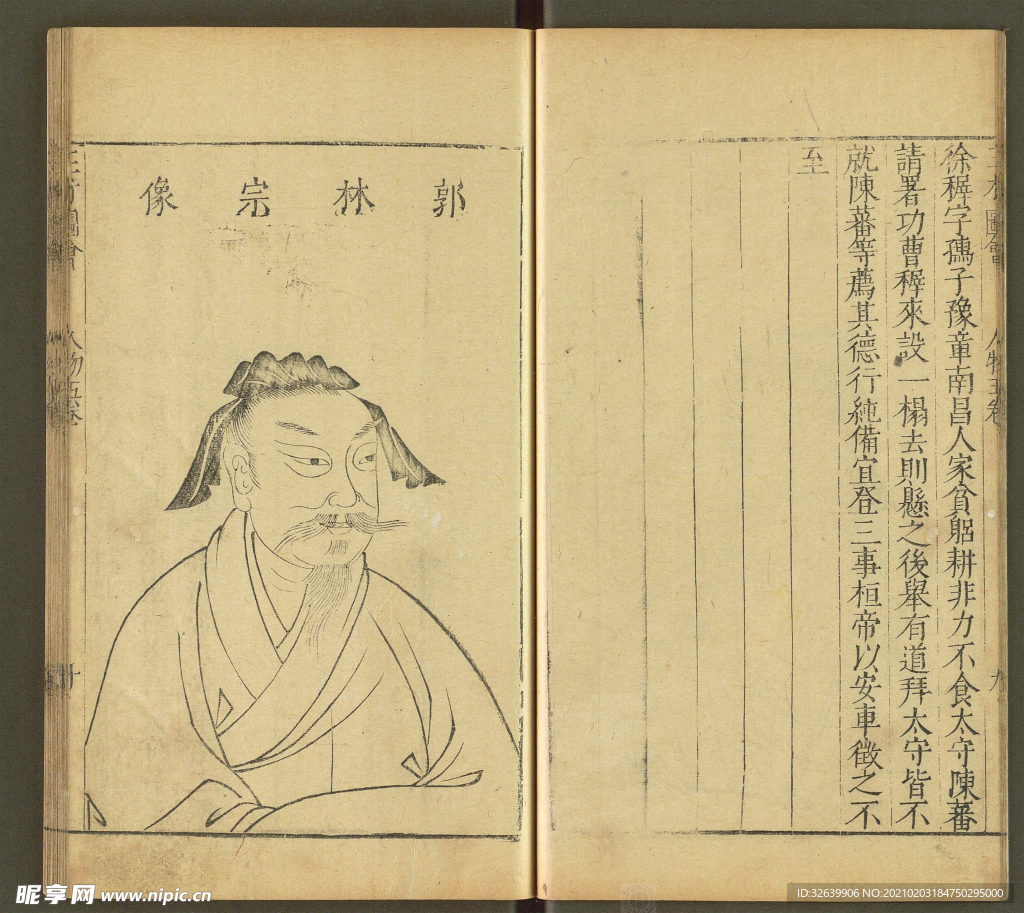 徐穉字孺子豫章南昌人家貧躬耕非力不食太守陳蕃
請署功曹穉來設一榻去則懸之後舉有道拜太守皆不
就陳蕃等薦其德行純備宜登三事桓帝以安車徵之不
至
人物五卷
九
郭林宗像
圖會
人物五卷
十
昵享网 www.nipic.cn
ID:32639906 NO:20210203184750295000